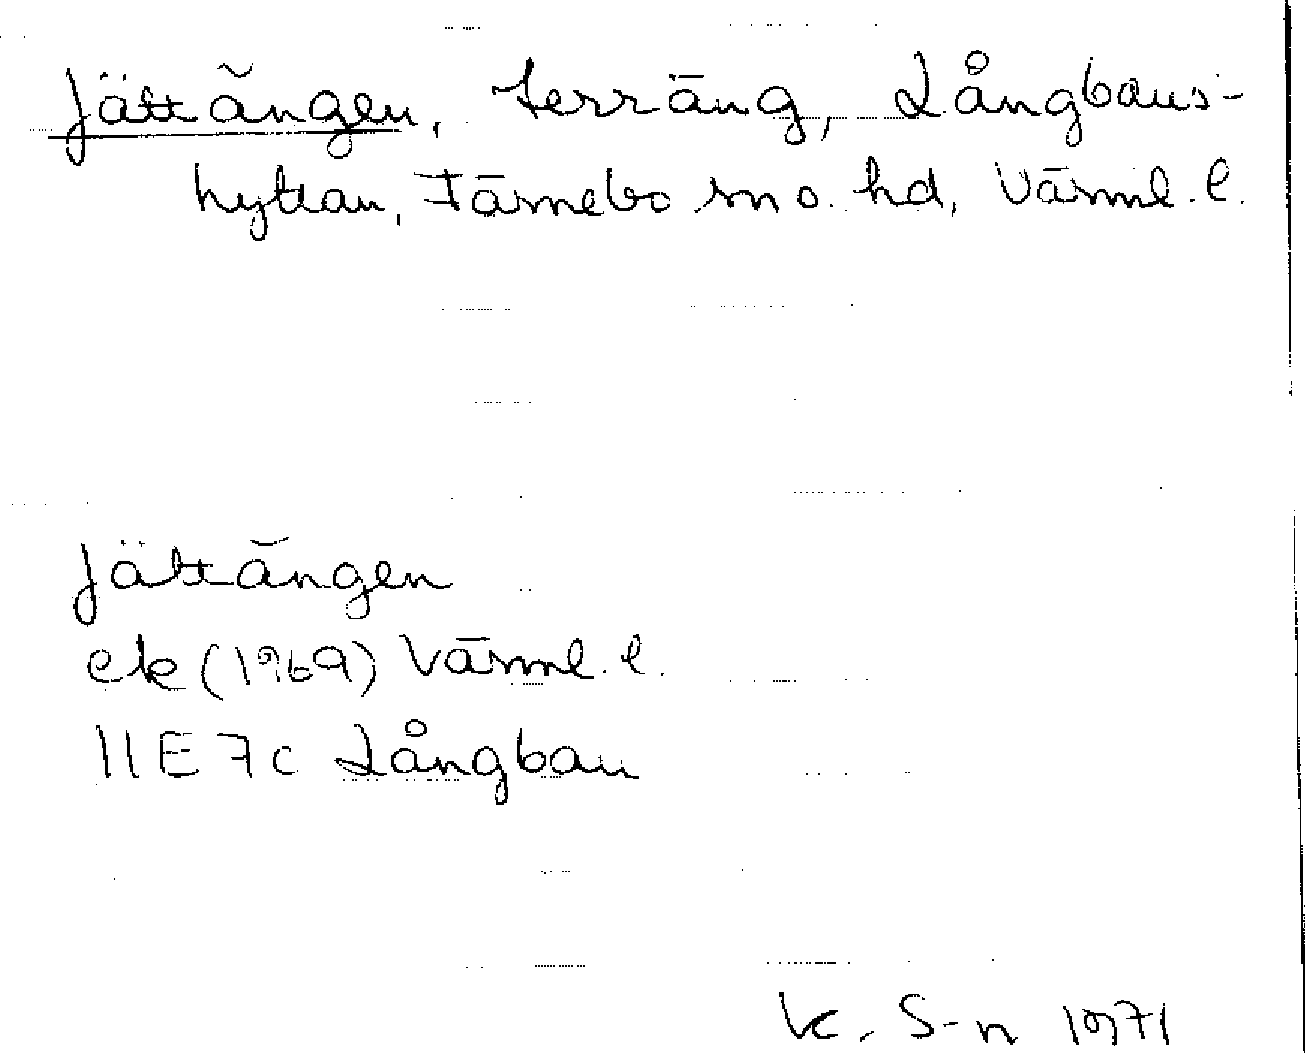 Jättängen, terräng, Långbans-
hyttan, Färnebo sn o. hd, Värml. l.
Jättängen
ek (1969) Värml. l.
11E 7c Långban
K. S-n 1971